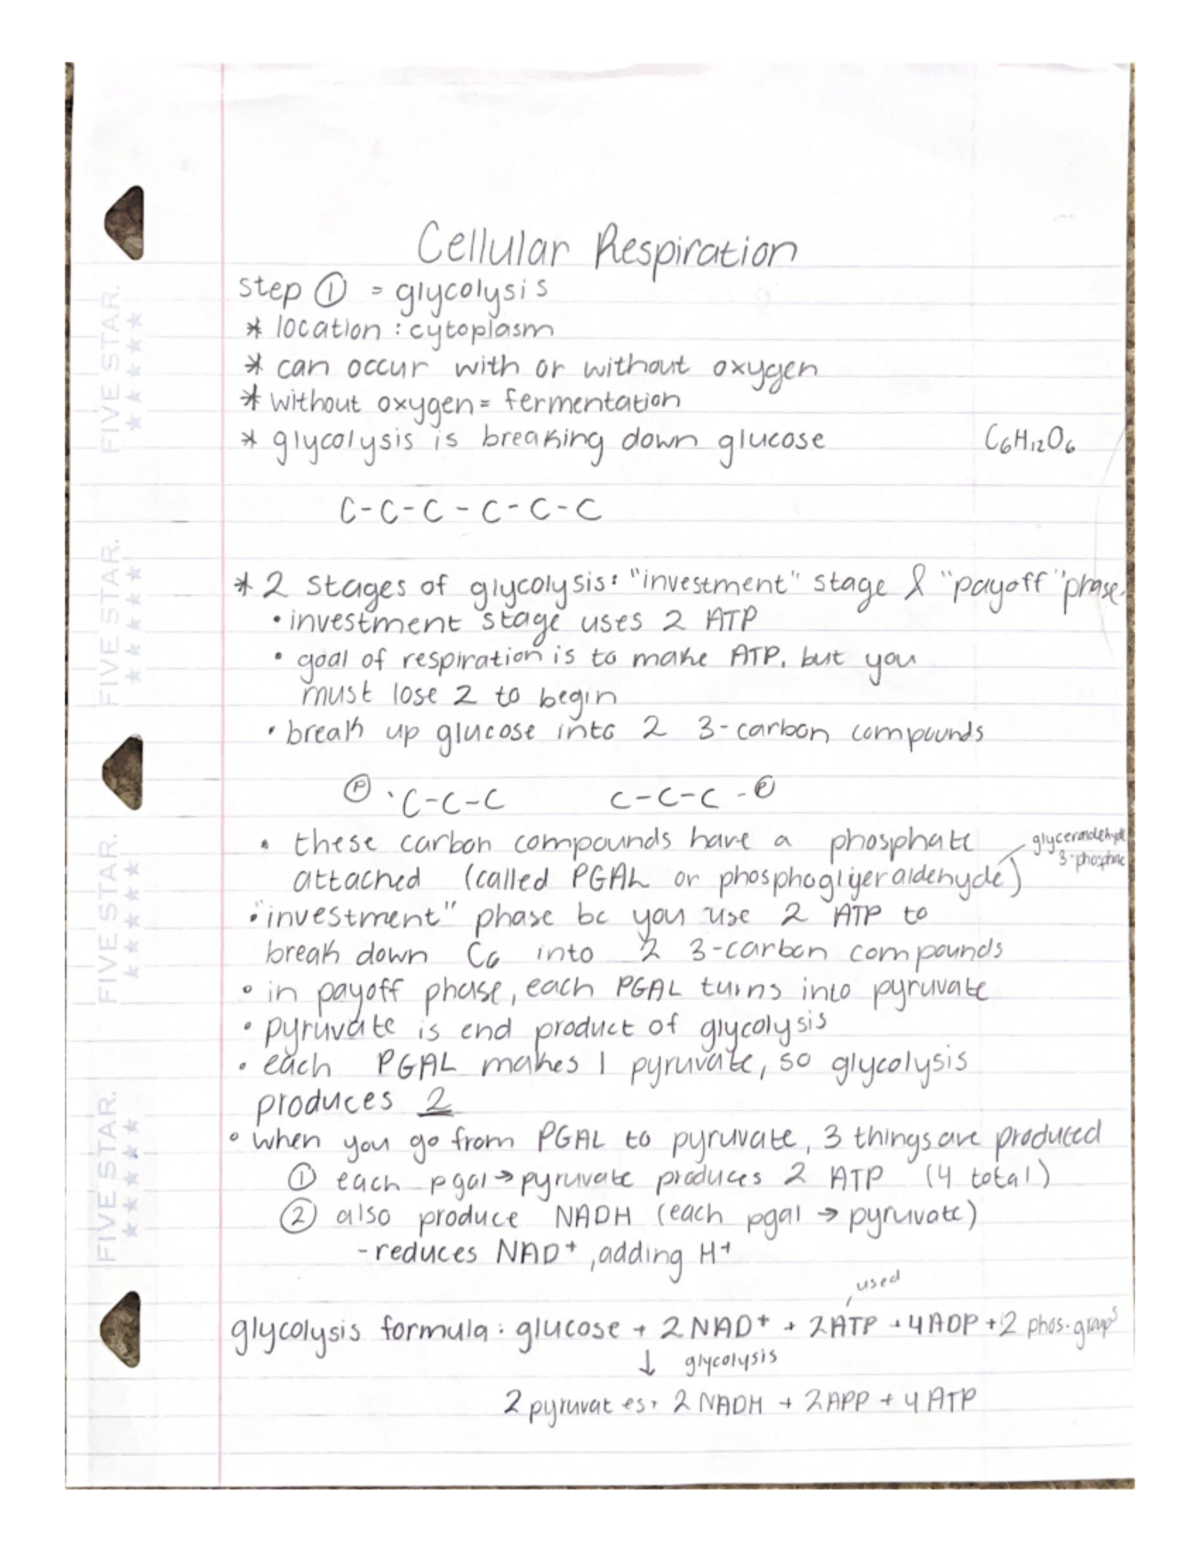 Cellular Respiration
step ① = glycolysis
* location : cytoplasm
* can occur with or without oxygen
* without oxygen = fermentation
* glycolysis is breaking down glucose C₆H₁₂O₆
C-C-C-C-C-C
* 2 stages of glycolysis: "investment" stage & "payoff" phase.
• investment stage uses 2 ATP
• goal of respiration is to make ATP, but you
must lose 2 to begin
• break up glucose into 2 3-carbon compounds
Ⓟ · C-C-C C-C-C - Ⓟ
• these carbon compounds have a phosphate
glyceraldehyde
3-phosphate
attached (called PGAL or phosphoglyeraldehyde)
• "investment" phase bc you use 2 ATP to
break down C₆ into 2 3-carbon compounds
• in payoff phase, each PGAL turns into pyruvate
• pyruvate is end product of glycolysis
• each PGAL makes 1 pyruvate, so glycolysis
produces 2
• when you go from PGAL to pyruvate, 3 things are produced
① each pgal → pyruvate produces 2 ATP (4 total)
② also produce NADH (each pgal → pyruvate)
- reduces NAD⁺, adding H⁺
used
glycolysis formula: glucose + 2 NAD⁺ + 2 ATP + 4 ADP + 2 phos. groups
↓ glycolysis
2 pyruvates + 2 NADH + 2 APP + 4 ATP
FIVE STAR.
FIVE STAR.
FIVE STAR.
FIVE STAR.